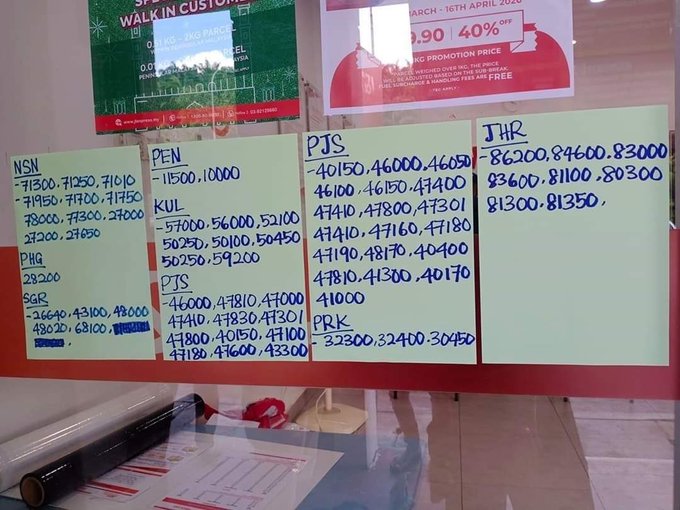 WALK IN CUSTOME
2KG PARCEL
www.jtexpress.my
MARCH - 16TH APRIL 2020
9.90 40% OFF
KG PROMOTION PRICE
PARCEL WEIGHED OVER 1KG, THE PRICE
WILL BE ADJUSTED BASED ON THE SUB-BREAK.
FUEL SURCHARGE & HANDLING FEES ARE FREE
NSN
-71300,71250,71010
-71950,71700,71750
78000,77300,27000
27200,27650
PHG
28200
SGR
-26640,43100,48000
48020,68100,
PEN
-11500,10000
KUL
-57000,56000,52100
50250,50100,50450
50250,59200
PJS
-46000,47810,47000
47410,47830,47301
47800,40150,47100
47180,47600,43300
PJS
-40150,46000,46050
46100,46150,47400
47410,47800,47301
47410,47160,47180
47190,48170,40400
47810,41300,40170
41000
PRK
-32300,32400.30450
JHR
-86200,84600.83000
83600,81100,80300
81300.81350,